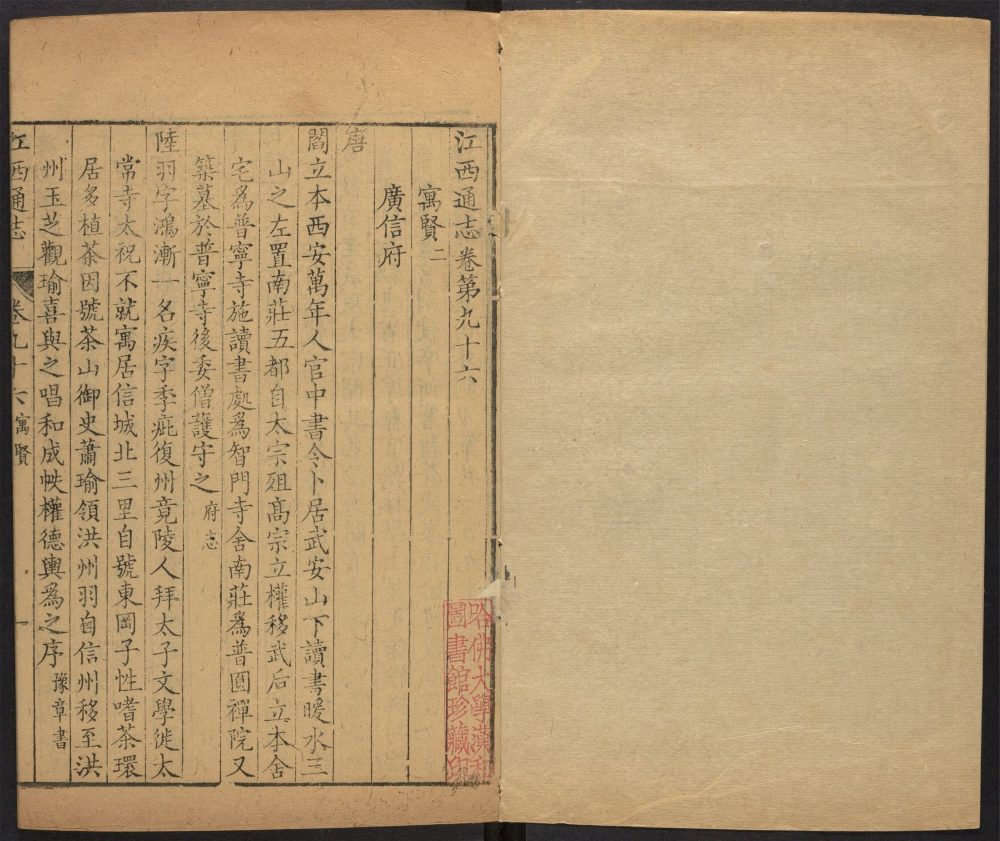 江西通志卷第九十六
寓賢二
廣信府
唐
閻立本西安萬年人官中書令卜居武安山下讀書暖水三
山之左置南莊五都自太宗殂高宗立權移武后立本舍
宅為普寧寺施讀書處為智門寺舍南莊為普圓禪院又
築墓於普寧寺後委僧護守之府志
陸羽字鴻漸一名疾字季疵復州竟陵人拜太子文學徙太
常寺太祝不就寓居信城北三里自號東岡子性嗜茶環
居多植茶因號茶山御史蕭瑜領洪州羽自信州移至洪
州玉芝觀瑜喜與之唱和成帙權德輿為之序豫章書
江西通志 卷九十六寓賢 一
哈佛大學漢和
圖書館珍藏印